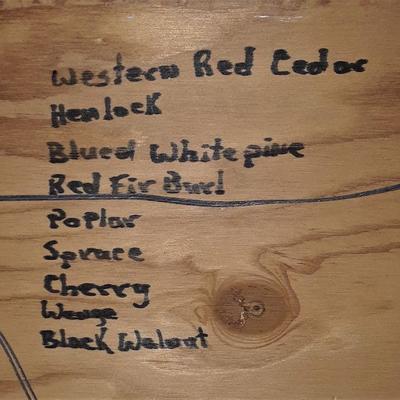 Western Red Cedar
Hemlock
Blued White pine
Red Fir Burl
Poplar
Spruce
Cherry
Wenge
Black Walnut